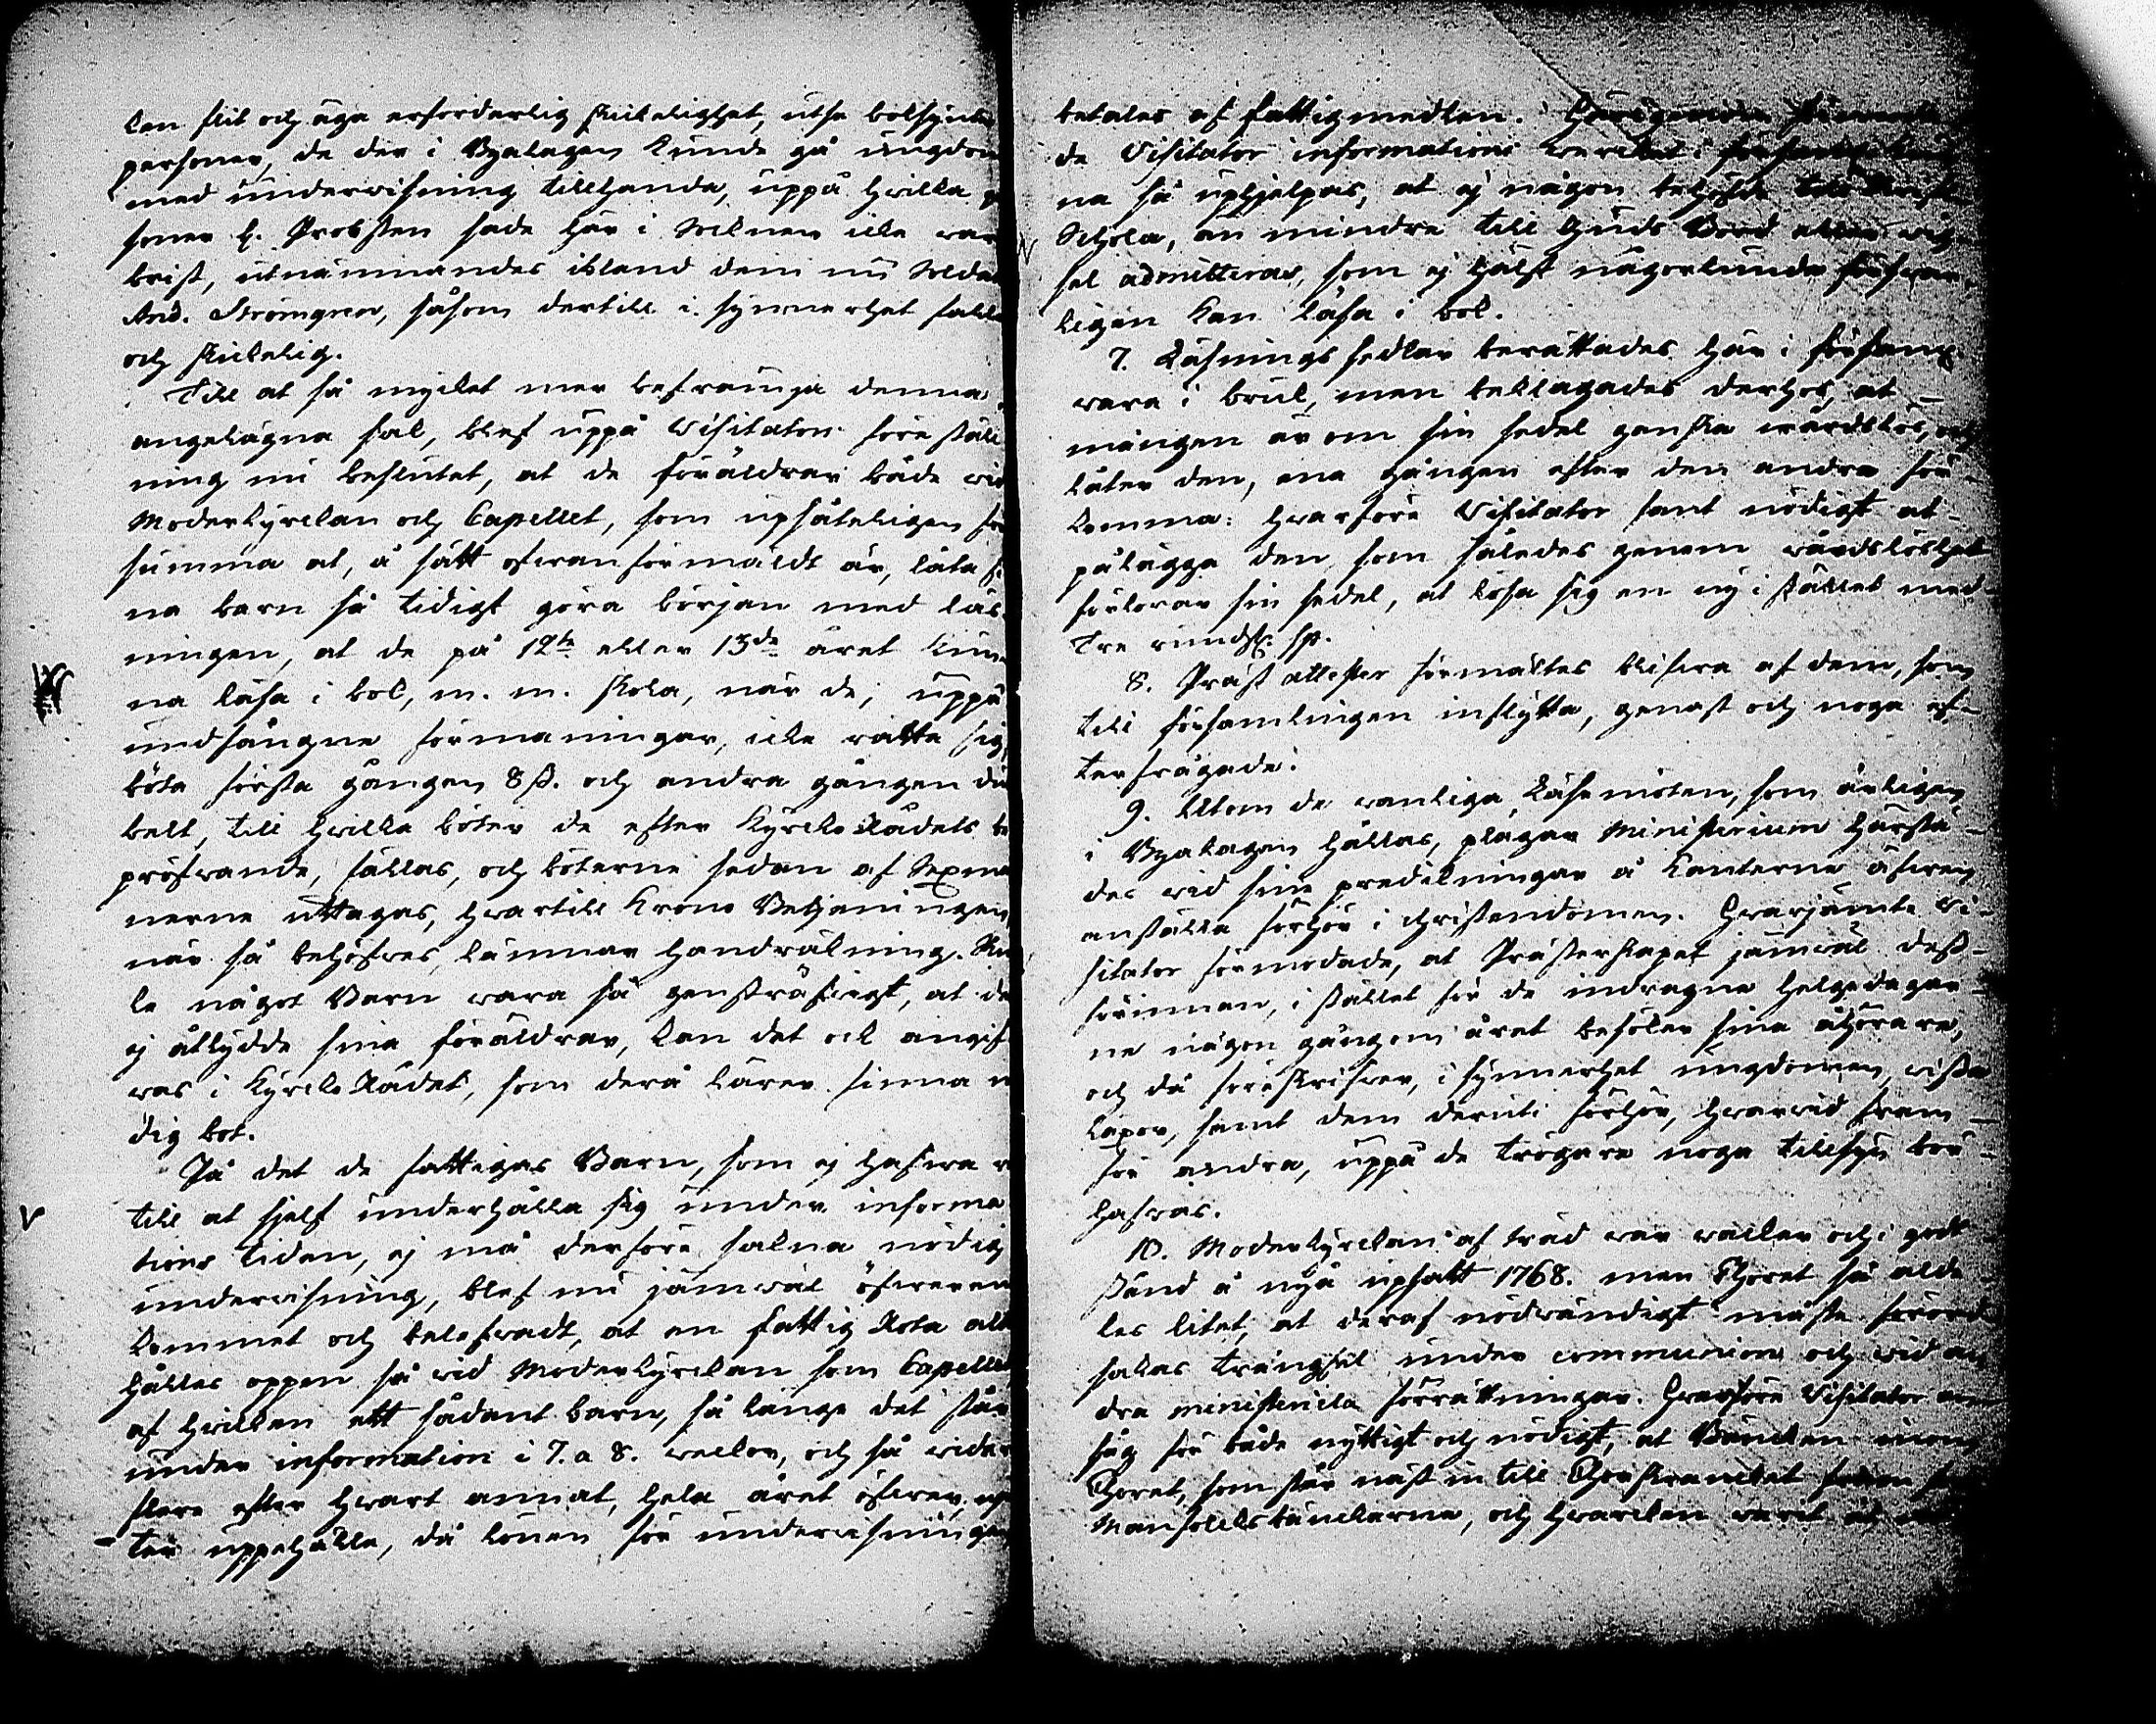 kan flit och äga erforderlig skickelighet, utse bokhynte
personer, de der i Byalagen kunde gå ungdom
med underwisning tillhanda, uppå hwilka
soner h. Probsten sade här i Socknen icke wara
brist, utnämnandes ibland dem nu Soldat
And. Strömgren, såsom dertill i synnerhet
och skickelig.
Till at så mycket mer befrämja denna
angelägna sak, blef uppå Visitators förestäl
ning nu beslutet, at de föräldrar både wid
Moderkyrckan och Capellet, som upsåteligen för
summa at, å sätt ofwanförmäldt är, låta si
na barn så tidigt göra början med läs
ningen, at de på 12te eller 13de året kun
na läsa i bok, m. m. skola, när de, uppå
undfångne förmaningar, icke rätta sig,
böta första gången 8 ß. och andra gången du
belt, till hwilka böter de efter Kyrcko Rådets be
pröfwande, fällas, och böterne sedan af Sexmä
nerne uttagas, hwartill Krono Betjeningen,
när så behöfwes, lämnar handräckning. Skul
le något Barn wara så gensträfwigt, at det
ej åtlydde sina föräldrar, kan det ock angif
was i Kyrcko Rådet, som derå lärer finna
dig bot.
På det de fattigas Barn, som ej hafwa
till at sjelf underhålla sig under informa
tions tiden, ej må derföre sakna nödig
underwisning, blef nu jämwäl öfwerens
kommet och belefwadt, at en fattig Skola
hålles öppen så wid Moderkyrckan som Capellet
af hwilken ett sådant barn, så länge det står
under information i 7. a 8. weckor, och så wida
flere efter hwart annat, hela året öfwer,
ter uppehälle, då lönen för underwisningen
betales af fattigmedlen.
de Visitator informations wercket i
na så uphjelpas, at ej någon
Schola, än mindre till Guds Bord eller wig
sel admitteras, som ej hälst någorlunda
ligen kan läsa i bok.
7. Läsnings sedlar berättades här i förs
wara i bruk, men beklagades derhos, at
mången är om sin sedel ganska wårdslös, och
låter den, ena gången efter den andra för
komma: hwarföre Visitator fant nödigt at
pålägga den, som således genom wårdslöshet
förlorar sin sedel, at lösa sig en ny i stället med
Tre rundst. sp.
8. Präst attester förmältes blifwa af dem, som
till församlingen inflytta, genast och noga ef
terfrågade.
9. Utom de wanliga Läsemöten, som årligen
i Byalagen hållas, plägar Ministerium härstä
des wid sine predikningar å Kanterne äfwen
anställa förhör i christendomen. Hwarjämte Vi
sitator förmodade, at Prästerskapet jämwäl dess
förinnan, i stället för de indragne helgedagar
ne någon gång om året besöker sina åhörare,
och då föreskrifwer, i synnerhet ungdomen, wissa
läxor, samt dem deruti förhör, hwarwid fram
för andra, uppå de trögare noga tillsyn bör
hafwas.
10. Moderkyrckan af träd war wacker och i godt
stånd å nyå upsatt 1768. men Choret så alde
les litet, at deraf nödwändigt måste föror
sakas trängsel under communion och wid an
dra ministeriela förrättningar. Hwarföre Visitator an
såg för både nyttigt och nödigt, at Bäncken inom
Choret, som står näst in till Chorskrancket
Manfolcksbänckarne, och hwarcken